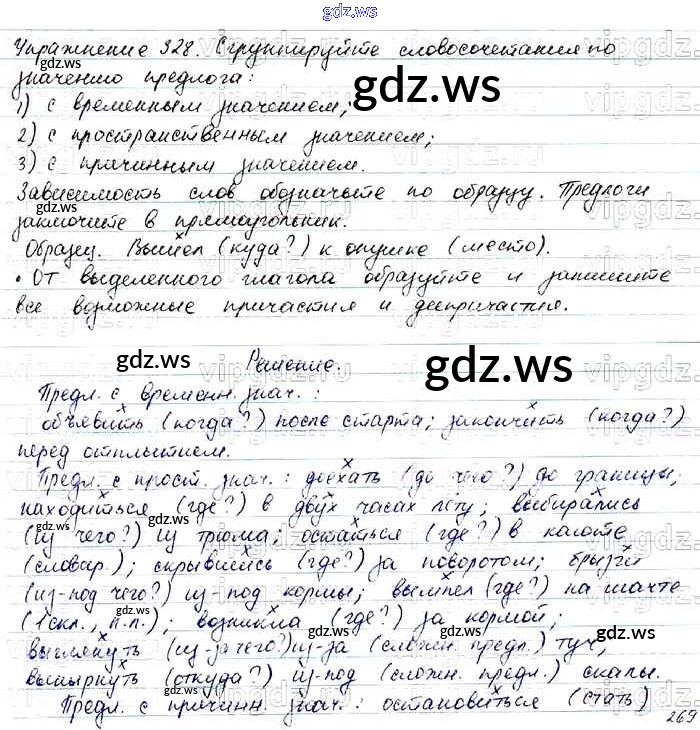 gdz.ws
Упражнение 328. Сгруппируйте словосочетания по
значению предлога:
gdz.ws
1) с временным значением;
2) с пространственным значением;
3) с причинным значением.
Зависимость слов обозначьте по образцу. Предлоги
gdz.ws
заключите в прямоугольник.
Образец. Вышел (куда?) к опушке (место).
• От выделенного глагола образуйте и запишите
все возможные причастия и деепричастия.
gdz.ws Решение. gdz.ws
Предл. с временн. знач.:
объявить (когда?) после старта; закончить (когда?)
перед отплытием.
Предл. с прост. знач.: доехать (до чего?) до границы;
находиться (где?) в двух часах лёту; выбирались
gdz.ws
(из чего?) из трюма; остаться (где?) в каюте
(словар.); скрывшись (где?) за поворотом; брызги
(из-под чего?) из-под кормы; вымпел (где?) на мачте
gdz.ws
(1 скл., п.п.); возникла (где?) за кормой;
gdz.ws
выглянуть (из-за чего?) из-за (сложн. предл.) туч;
вынырнуть (откуда?) из-под (сложн. предл.) скалы.
gdz.ws
Предл. с причинн. знач.: остановиться (стать)
269